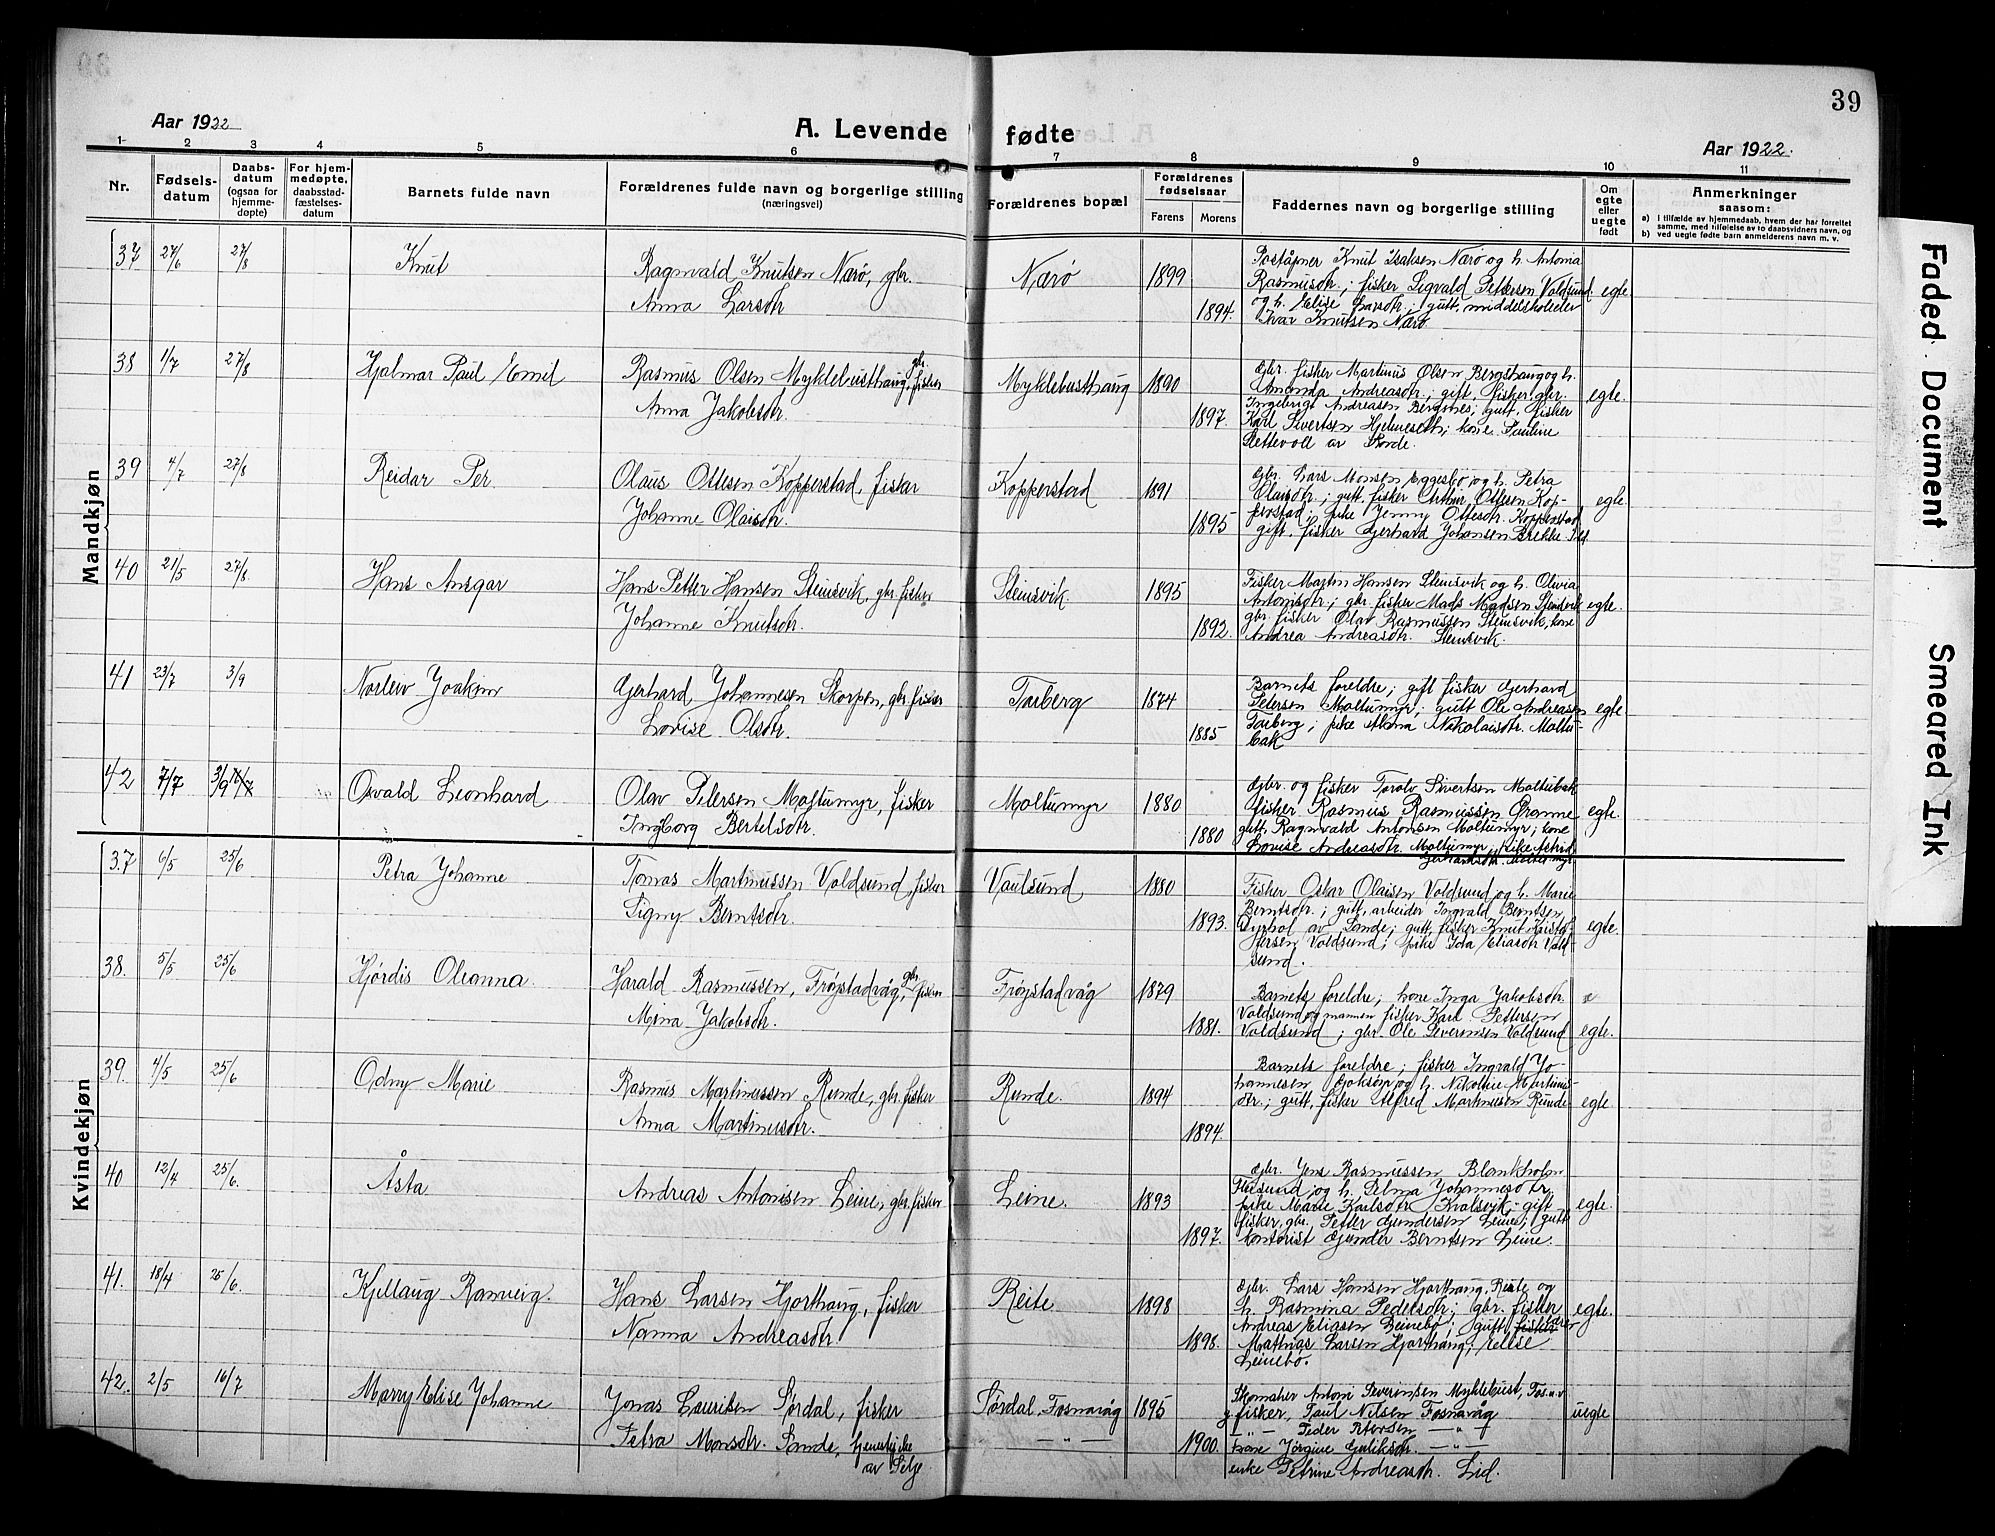 39
Aar 1922
A. Levende fødte
Aar 1922.
1 2 3 4 5 6 7 8 9 10 11
Nr.
Fødsels-
datum
Daabs-
datum
(ogsaa for
hjemme-
døpte)
For hjem-
medøpte,
daabsstad-
fæstelses-
datum
Barnets fulde navn
Forældrenes fulde navn og borgerlige stilling
(næringsvei)
Forældrenes bopæl
Forældrenes
fødselsaar
Farens Morens
Faddernes navn og borgerlige stilling
Om
egte
eller
uegte
født
Anmerkninger
saasom:
a) I tilfælde av hjemmedaab, hvem der har forrettet
samme, med tilføielse av to daabsvidners navn, og
b) ved uegte fødte barn anmelderens navn m. v.
Mandkjøn
37 27/6 27/8 Knut
Ragnvald Knutsen Nærø, gbr.
Anna Larsdtr
Nærø 1899 1894.
Poståpner Knut Isaksen Nærø og h. Antonia
Rasmusdtr.; fisker Sigvald Pettersen Voldsund
og h. Elise Larsdtr; gutt, middelskoleelev
Ivar Knutsen Nærø
egte
38 1/7 27/8 Hjalmar Paul Emil
Rasmus Olsen Myklebusthaug, gbr. fisker
Anna Jakobsdtr.
Myklebusthaug 1890 1897.
Gbr. fisker Martinus Olsen Bergshaug og h.
Amanda Andreasdtr.; gift, fisker, gbr.
Ingebrigt Andreasen Bergsnes; gutt, fisker
Karl Sivertsen Hjelmeseth; kone Pauline
Slettevoll av Sande.
egte.
39 4/7 27/8 Reidar Per
Olaus Ottesen Kopperstad, fisker
Johanne Olaisdtr.
Kopperstad 1891 1895
Gbr. Lars Monsen Eggesbø og h. Petra
Olaisdtr.; gutt, fisker Arthur Ottesen Kop-
perstad; pike Jenny Ottesdtr. Kopperstad
gift, fisker Gerhard Johansen Brekke
egte.
40 21/5 27/8. Hans Ansgar
Hans Petter Hansen Steinsvik, gbr. fisker
Johanne Knutsdtr.
Steinsvik. 1895 1892.
Fisker Martin Hansen Steinsvik og h. Olivia
Antonsdtr.; gbr. fisker Mads Madsen
gbr. fisker Olav Rasmussen Steinsvik, kone
Andrea Andreasdtr. Steinsvik.
egte.
41 23/7 3/9 Norlew Joakim
Gerhard Johannesen Skorpen, gbr. fisker
Lovise Olsdtr.
Tarberg 1874 1885
Barnets foreldre; gift fisker Gerhard
Petersen Moltumyr; gutt Ole Andreasen
Tarberg; pike Anna Nikolaisdtr. Moltu-
bak
egte
42 7/7 3/9 Osvald Leonhard
Olav Petersen Moltumyr, fisker
Ingborg Bertelsdtr.
Moltumyr 1880 1880
Gbr. og fisker Torolv Sivertsen Moltubak
fisker Rasmus Rasmussen Grønne
gutt, Ragnvald Antonsen Moltumyr; kone
Lovise Andreasdtr. Moltumyr, pike Astrid
Gerhardsdtr. Moltumyr
egte.
Kvindekjøn
37 6/5 25/6 Petra Johanne
Tomas Martinussen Voldsund, fisker
Signy Berntsdtr.
Vaulsund 1880 1893.
Fisker Oskar Olaisen Voldsund og h. Marie
Berntsdtr.; gutt, arbeider Ingvald Berntsen
Dyrhol av Sande; gutt, fisker Knut Kristof-
fersen Voldsund; pike Ida Eliasdtr Vold-
sund.
egte.
38. 5/5 25/6 Hjördis Oleanna.
Harald Rasmussen, Frøystadvåg, gbr. fisker
Mina Jakobsdtr.
Frøystadvåg 1879 1881.
Barnets foreldre; kone Inga Jakobsdtr.
Voldsund og mannen fisker Karl Pettersen
Voldsund; gbr. Ole Severinsen Voldsund
egte.
39. 4/5 25/6 Odny Marie
Rasmus Martinussen Runde, gbr. fisker
Anna Martinusdtr.
Runde. 1894 1894.
Barnets foreldre; fisker Ingvald Jo-
hannesen Goksøyr og h. Nikoline Martinus-
dtr.; gutt, fisker Alfred Martinusen Runde
egte
40 12/4 25/6. Åsta
Andreas Antonsen Leine, gbr. fisker
Leine. 1893 1897.
Gbr. Jens Rasmussen Blankholm
Flusund og h. Selma Johannesdtr
pike Marie Karlsdtr Kvalsvik; gift
fisker, gbr. Petter Gundersen Leine; gutt
kontorist Gunder Berntsen Leine.
egte.
41. 18/4 25/6. Kjellaug Ranveig.
Hans Larsen Hjorthaug, fisker
Nanna Andreasdtr
Reite 1898 1898.
Gbr. Lars Hansen Hjorthaug, Reite og
h. Rasmina Pedersdtr; gbr. fisker
Andreas Eliasen Leinebø; gutt, fisker
Mathias Larsen Hjorthaug; Elise
Leinebø.
egte.
42. 2/5 16/7 Marry Elise Johanne
Jonas Lauritsen Sørdal, fisker
Petra Monsdtr. Sande, tjenestepike
av Selje
Sørdal, Fosnavåg 1895 1900.
— " —
Skomaker Anton Severinsen Myklebust, Fosnav
g. fisker, Paul Nilsen Fosnavåg
— " — Peder Petersen — " —
kone Jørgine Gutiksdtr. — " —
enke Petrine Andreasdtr. Lid.
uegte
Faded Document
Smeared Ink